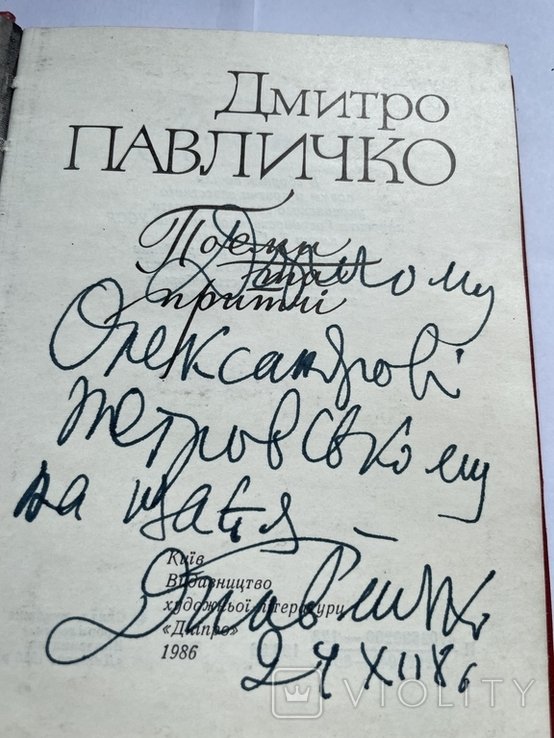 Дмитро
ПАВЛИЧКО
Поеми
та
притчі
Олександрові
Петровському
на щастя
Київ
Видавництво
художньої літератури
«Дніпро»
1986
VIOLITY